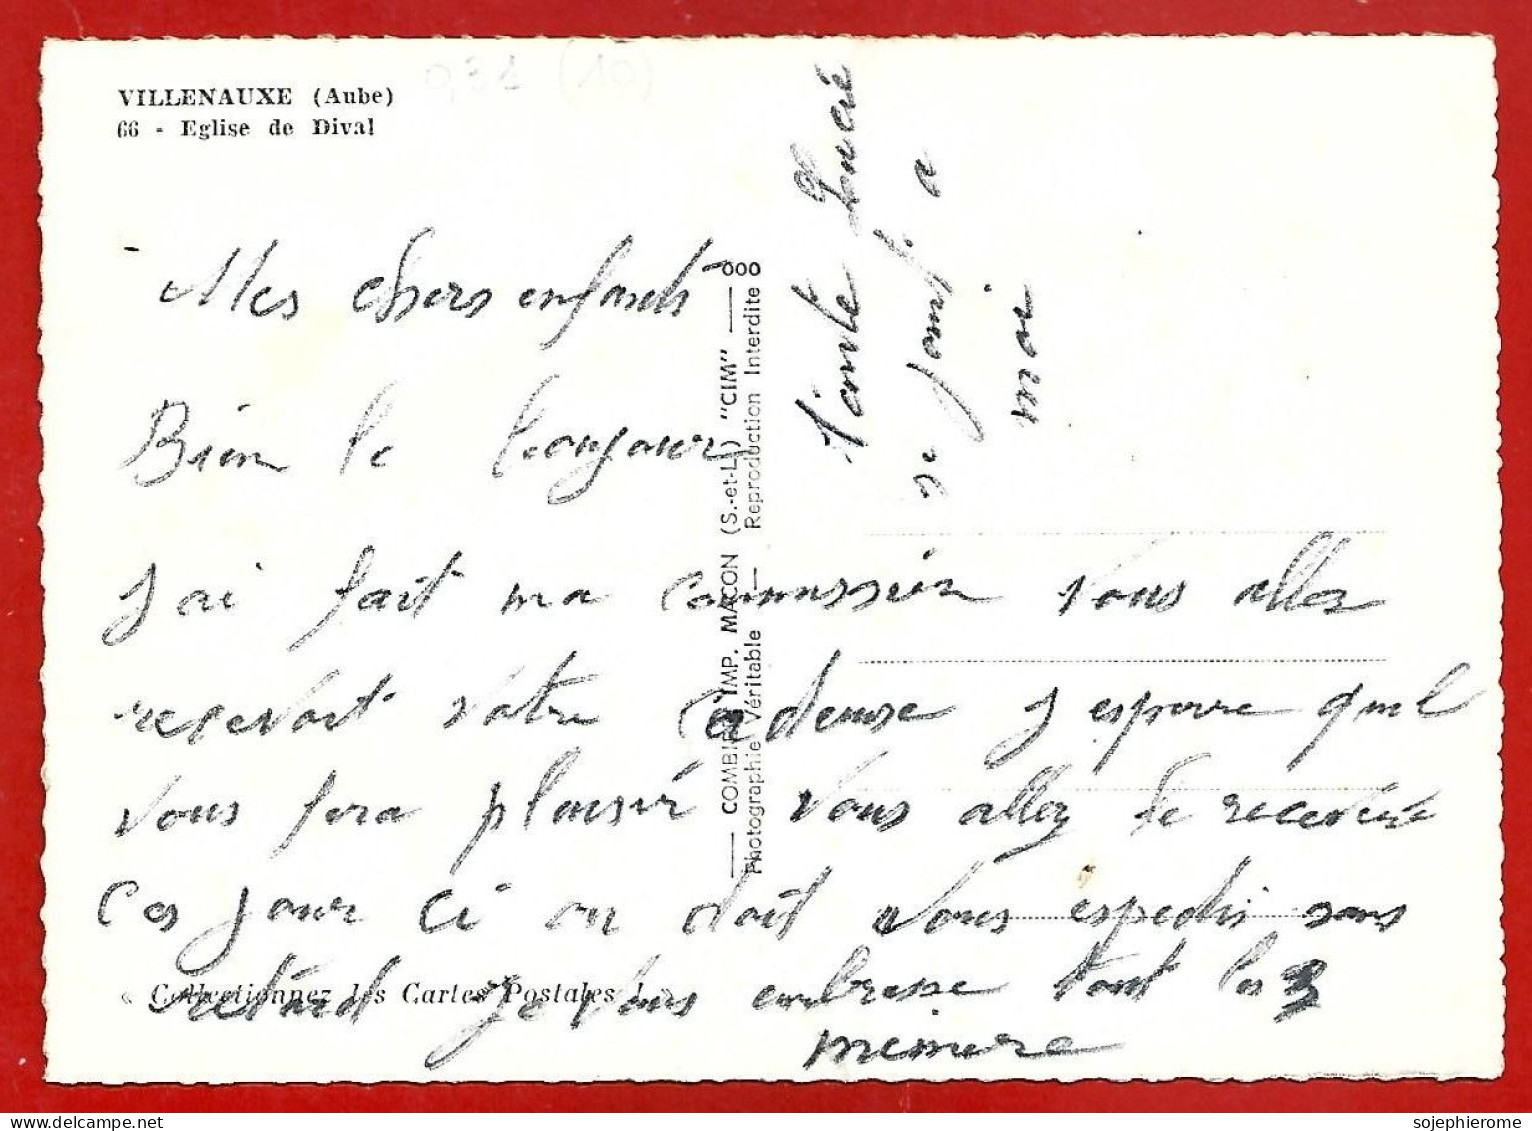 VILLENAUXE (Aube)
66 - Eglise de Dival
931 (10)
Mes chers enfants
Bien le bonjour
J ai fait ma commission vous allez
resevoit votre Cadeuse J esperre quel
vous fera plaisir vous allez le recevoir
Ces jour ci on doit vous espedis sans
retard Je vous embrasse tout les 3
memere
Tante Lucie
se joint a
moi
COMBIER IMP. MACON (S.-et-L.) "CIM"
Photographie Véritable — Reproduction Interdite
« Collectionnez les Cartes Postales ! »
sojephierome